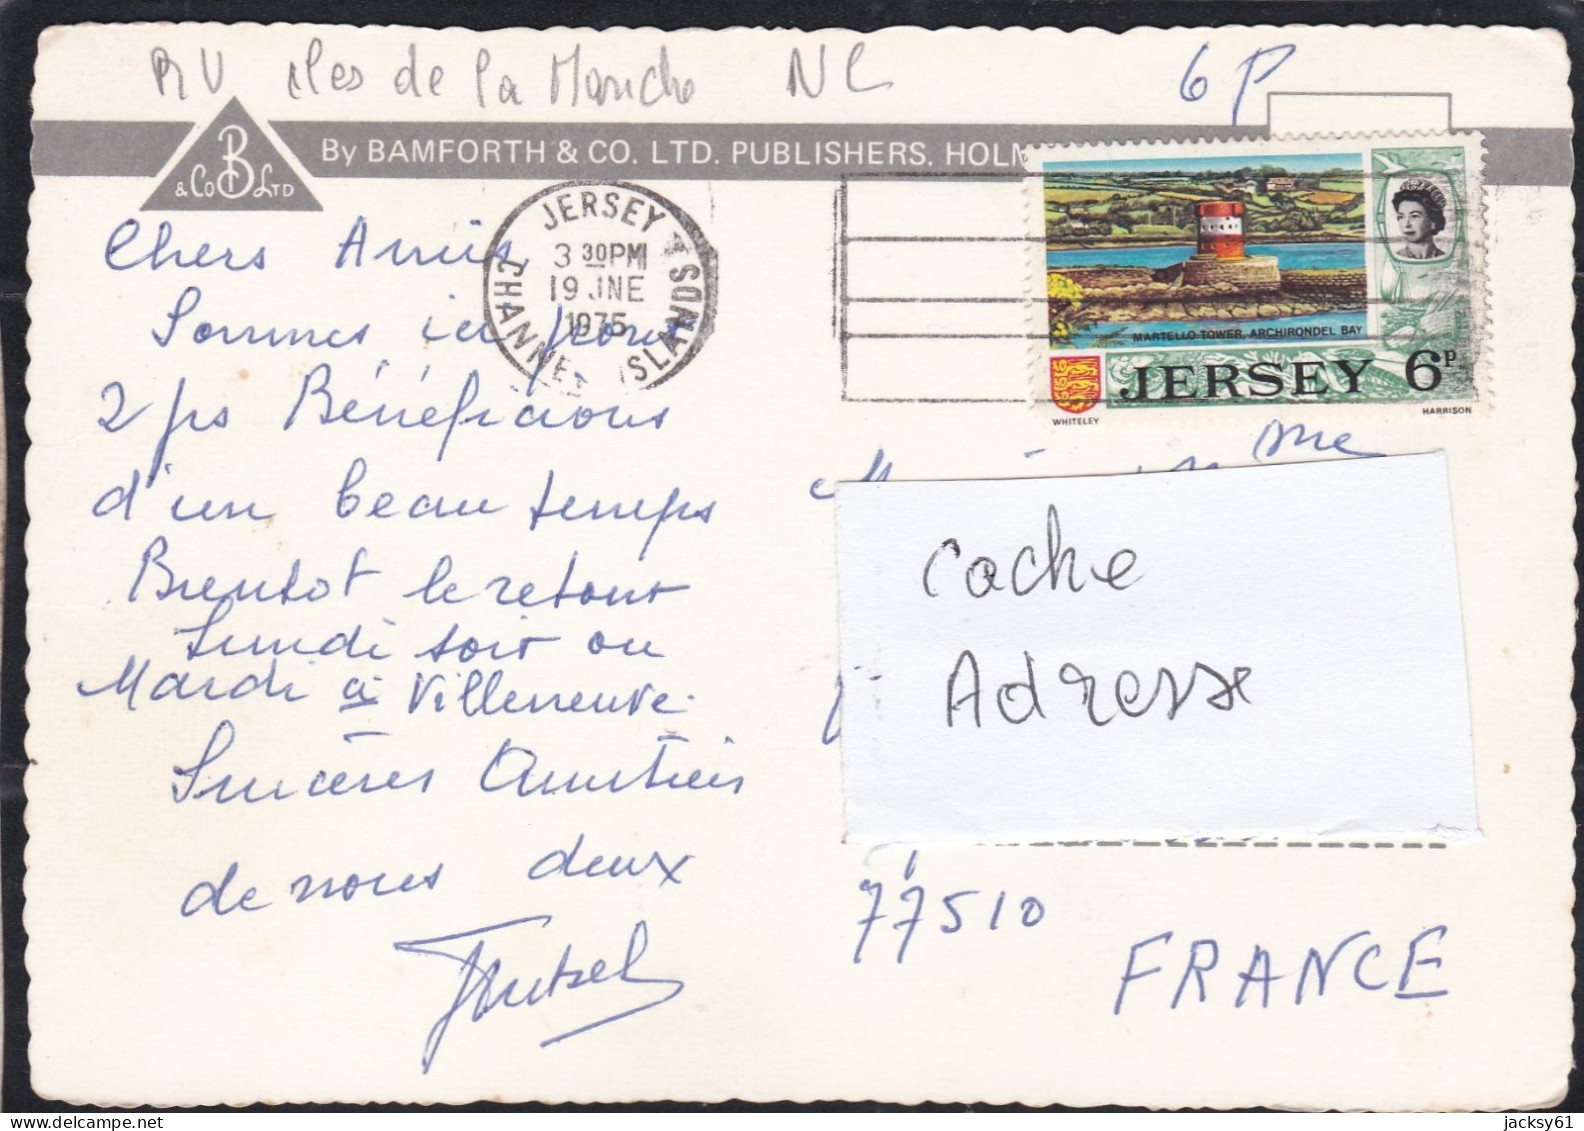 RV iles de la Manche NC
6P
B & Co LTD
By BAMFORTH & CO. LTD. PUBLISHERS. HOLM
JERSEY
CHANNEL ISLANDS
3 30PM
19 JNE
1975
MARTELLO TOWER, ARCHIRONDEL BAY
JERSEY 6P
WHITELEY
HARRISON
Chers Amis
Sommes ici pour
2 jrs Bénéficions
d'un beau temps
Bientot le retour
Lundi soir ou
Mardi à Villeneuve.
Sincères Amitiés
de nous deux
Mme
Cache
Adresse
77510
FRANCE
jacksy61